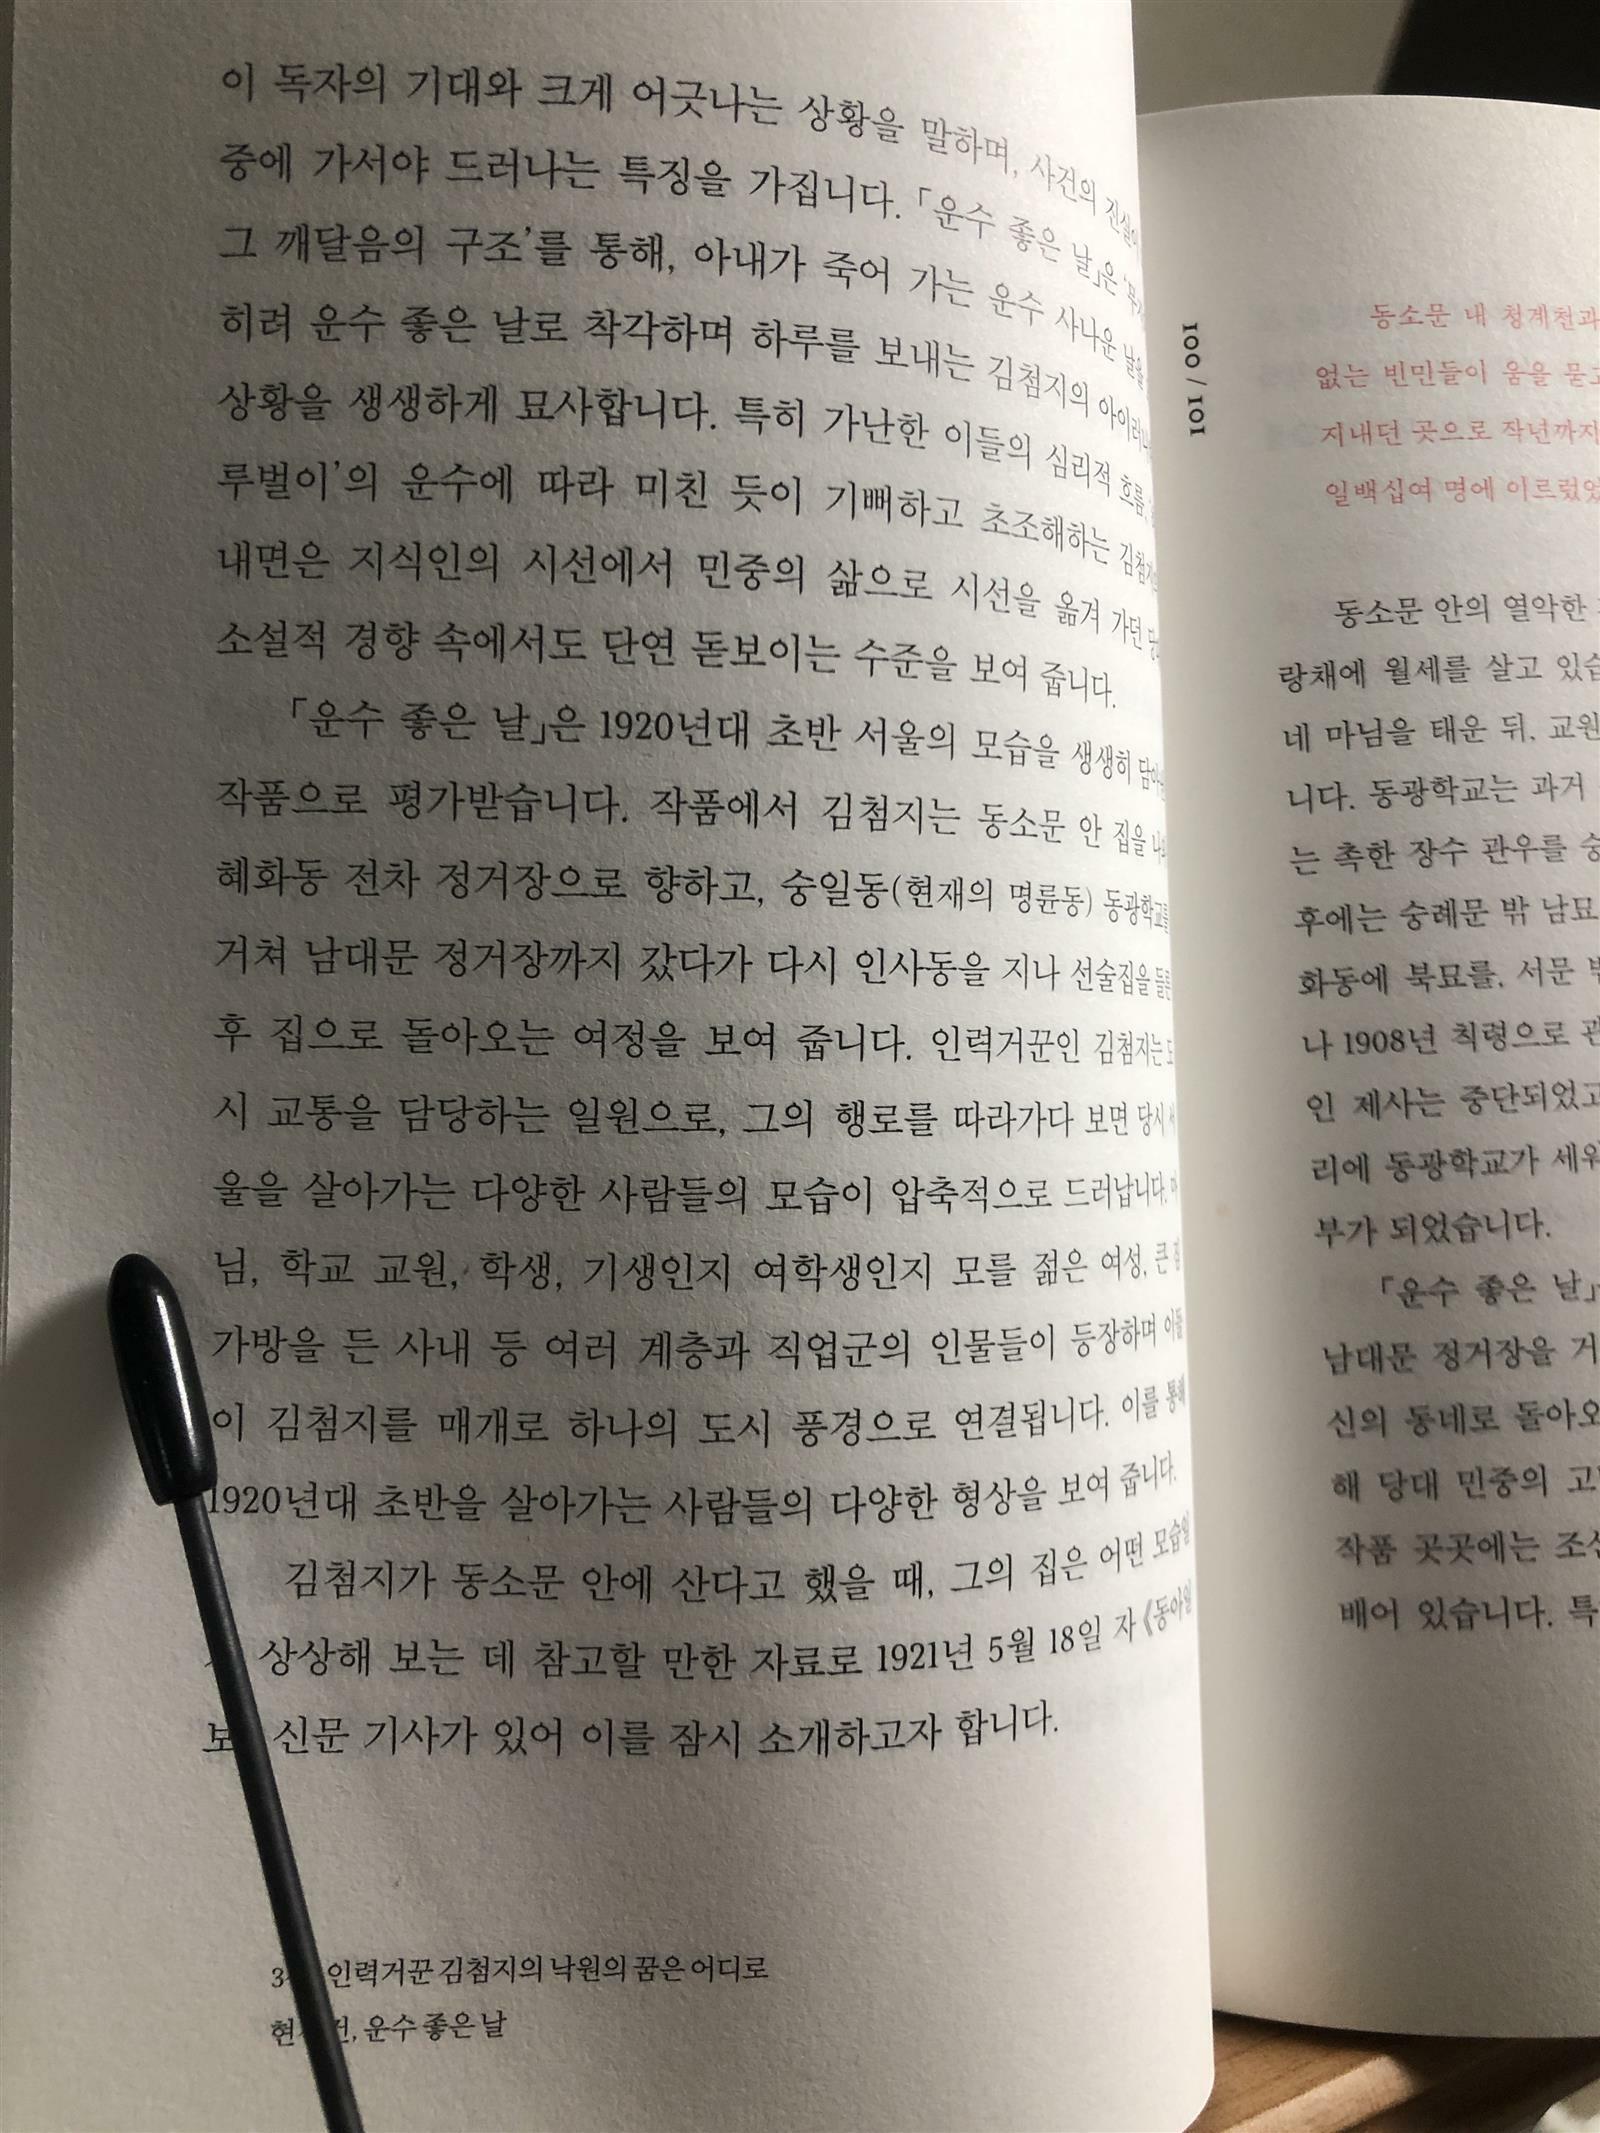 이 독자의 기대와 크게 어긋나는 상황을 말하며, 사건의 진실이
중에 가서야 드러나는 특징을 가집니다. 「운수 좋은 날」은
그 깨달음의 구조’를 통해, 아내가 죽어 가는 운수 사나운 날을
히려 운수 좋은 날로 착각하며 하루를 보내는 김첨지의
상황을 생생하게 묘사합니다. 특히 가난한 이들의 심리적 흐름,
루벌이’의 운수에 따라 미친 듯이 기뻐하고 초조해하는
내면은 지식인의 시선에서 민중의 삶으로 시선을 옮겨 가던
소설적 경향 속에서도 단연 돋보이는 수준을 보여 줍니다.
「운수 좋은 날」은 1920년대 초반 서울의 모습을 생생히
작품으로 평가받습니다. 작품에서 김첨지는 동소문 안 집을
혜화동 전차 정거장으로 향하고, 숭일동(현재의 명륜동) 동광학교를
거쳐 남대문 정거장까지 갔다가 다시 인사동을 지나 선술집을 들른
후 집으로 돌아오는 여정을 보여 줍니다. 인력거꾼인 김첨지는 도
시 교통을 담당하는 일원으로, 그의 행로를 따라가다 보면 당시 서
울을 살아가는 다양한 사람들의 모습이 압축적으로 드러납니다. 마
님, 학교 교원, 학생, 기생인지 여학생인지 모를 젊은 여성, 큰 짐
가방을 든 사내 등 여러 계층과 직업군의 인물들이 등장하며 이들
이 김첨지를 매개로 하나의 도시 풍경으로 연결됩니다. 이를 통해
1920년대 초반을 살아가는 사람들의 다양한 형상을 보여 줍니다.
김첨지가 동소문 안에 산다고 했을 때, 그의 집은 어떤 모습일
상상해 보는 데 참고할 만한 자료로 1921년 5월 18일 자 《동아일
신문 기사가 있어 이를 잠시 소개하고자 합니다.
인력거꾼 김첨지의 낙원의 꿈은 어디로
운수 좋은 날
100 / 101
동소문 내 청계천과
없는 빈민들이 움을 묻고
지내던 곳으로 작년까지
일백십여 명에 이르렀었
동소문 안의 열악한
랑채에 월세를 살고 있습
네 마님을 태운 뒤, 교원
니다. 동광학교는 과거
는 촉한 장수 관우를 숭
후에는 숭례문 밖 남묘
화동에 북묘를, 서문
나 1908년 칙령으로 관
인 제사는 중단되었고
리에 동광학교가 세워
부가 되었습니다.
「운수 좋은 날」
남대문 정거장을 거
신의 동네로 돌아오
해 당대 민중의 고
작품 곳곳에는 조선
배어 있습니다. 특